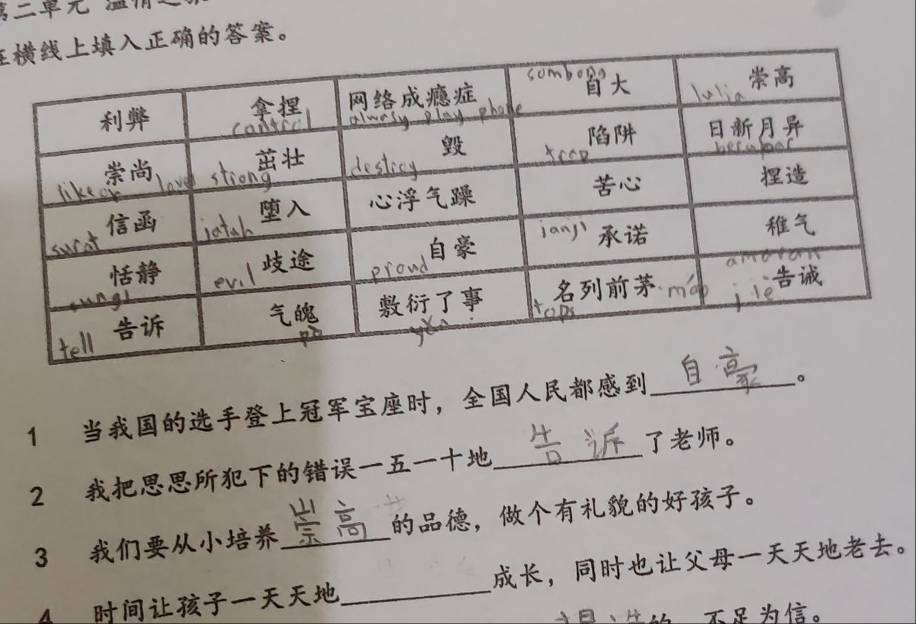 第二单元
在横线上填入正确的答案。
利弊 拿捏 control 网络成瘾症 always play phone sombong 自大 lulia 崇高
崇尚 like love 茁壮 strong 毁 destroy 陷阱 trap 日新月异
信函 surat 堕入 jatuh 心浮气躁 苦心 捏造
恬静 sungi 歧途 evil 自豪 proud 承诺 janji 稚气
告诉 tell 气魄 敷衍了事 名列前茅 tops 告诫
1 当我国的选手登上冠军宝座时，全国人民都感到自豪。
2 我把思思所犯下的错误一五一十地告诉了老师。
3 我们要从小培养崇高的品德，做个有礼貌的好孩子。
4 时间让孩子一天天地______成长，同时也让父母一天天地老去。
的，不足为信。